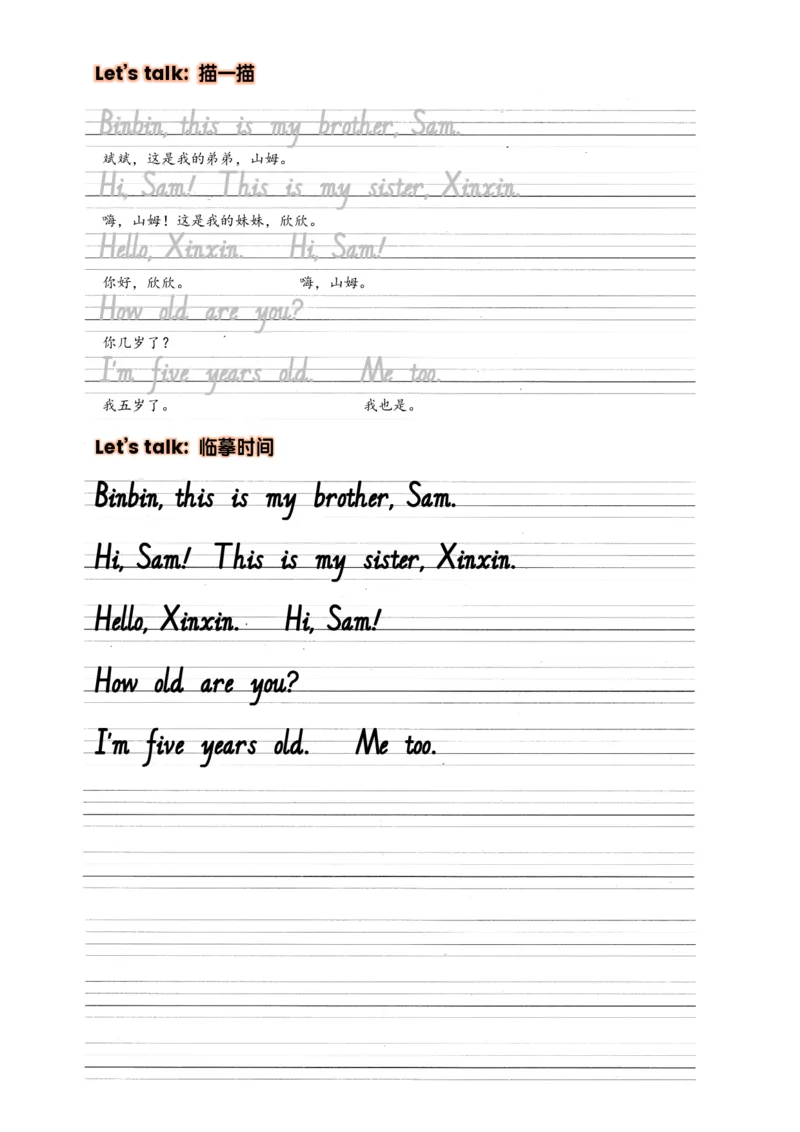 Let's talk: 描一描
Binbin, this is my brother, Sam.
斌斌，这是我的弟弟，山姆。
Hi, Sam! This is my sister, Xinxin.
嗨，山姆！这是我的妹妹，欣欣。
Hello, Xinxin. Hi, Sam!
你好，欣欣。 嗨，山姆。
How old are you?
你几岁了？
I'm five years old. Me too.
我五岁了。 我也是。
Let's talk: 临摹时间
Binbin, this is my brother, Sam.
Hi, Sam! This is my sister, Xinxin.
Hello, Xinxin. Hi, Sam!
How old are you?
I'm five years old. Me too.